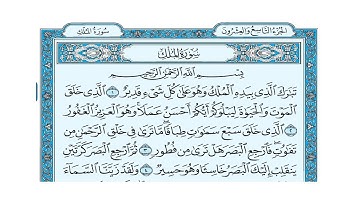 سُورَةُ المُلْكِ الجُزْءُ التَّاسِعُ وَالعِشْرُونَ
سُورَةُ المُلْكِ
بِسْمِ اللَّهِ الرَّحْمَٰنِ الرَّحِيمِ
تَبَٰرَكَ الَّذِي بِيَدِهِ الْمُلْكُ وَهُوَ عَلَىٰ كُلِّ شَيْءٍ قَدِيرٌ ١ الَّذِي خَلَقَ
الْمَوْتَ وَالْحَيَوٰةَ لِيَبْلُوَكُمْ أَيُّكُمْ أَحْسَنُ عَمَلًا وَهُوَ الْعَزِيزُ الْغَفُورُ
٢ الَّذِي خَلَقَ سَبْعَ سَمَٰوَٰتٍ طِبَاقًا مَّا تَرَىٰ فِي خَلْقِ الرَّحْمَٰنِ مِن
تَفَٰوُتٍ فَارْجِعِ الْبَصَرَ هَلْ تَرَىٰ مِن فُطُورٍ ٣ ثُمَّ ارْجِعِ الْبَصَرَ كَرَّتَيْنِ
يَنقَلِبْ إِلَيْكَ الْبَصَرُ خَاسِئًا وَهُوَ حَسِيرٌ ٤ وَلَقَدْ زَيَّنَّا السَّمَاءَ